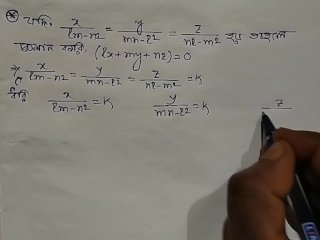 * যদি, x/(lm-n²) = y/(mn-l²) = z/(nl-m²) হয় তাহলে
প্রমাণ করি, (lx+my+nz)=0
x/(lm-n²) = y/(mn-l²) = z/(nl-m²) = k
ধরি
x/(lm-n²) = k y/(mn-l²) = k z